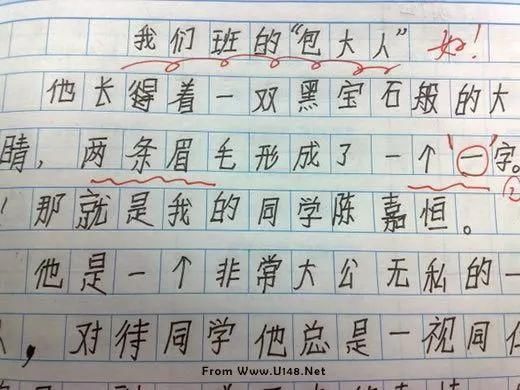 我们班的“包大人” 好!
他长得着一双黑宝石般的大
睛,两条眉毛形成了一个“一”字。
②
!那就是我的同学陈嘉恒。
他是一个非常大公无私的一
,对待同学他总是一视同仁
From Www.U148.Net